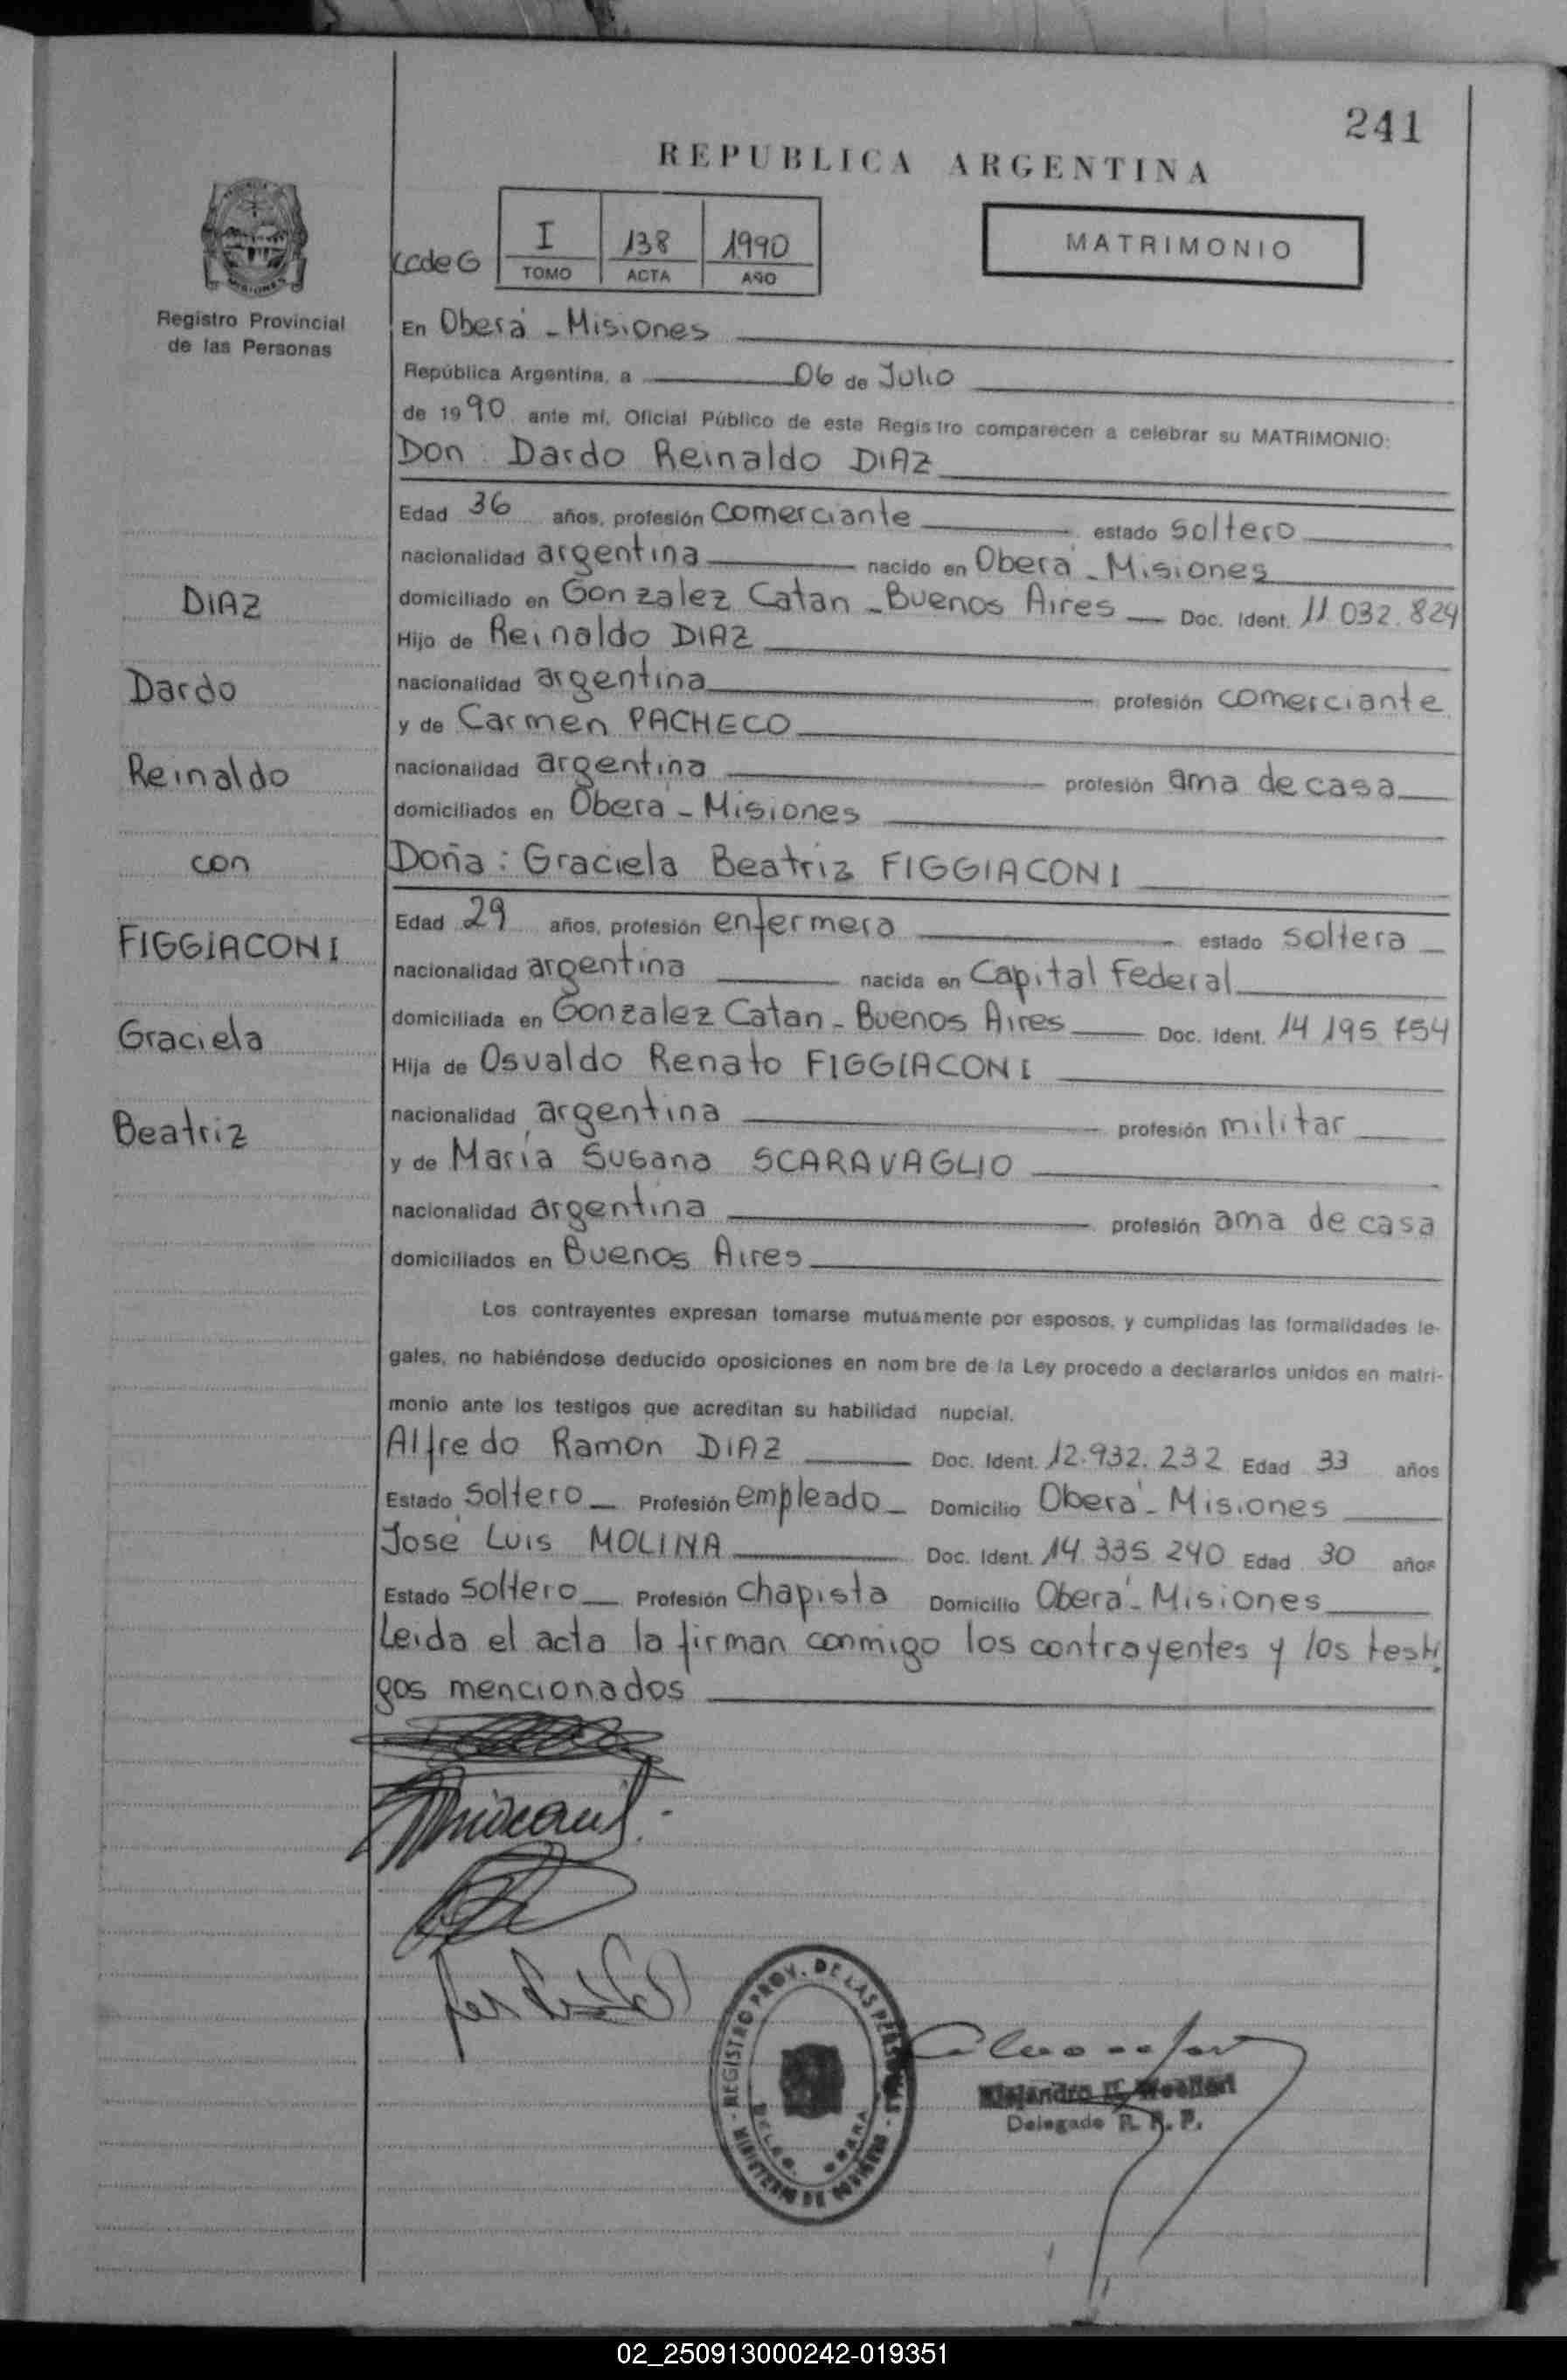 241
REPUBLICA ARGENTINA
I 138 1990
TOMO ACTA AÑO
MATRIMONIO
Registro Provincial
de las Personas
En Oberá - Misiones
República Argentina, a 06 de Julio
de 1990 ante mí, Oficial Público de este Registro comparecen a celebrar su MATRIMONIO:
Don: Dardo Reinaldo DIAZ
Edad 36 años, profesión comerciante estado soltero
nacionalidad argentina nacido en Oberá - Misiones
domiciliado en Gonzalez Catan - Buenos Aires Doc. Ident. 11.032.824
Hijo de Reinaldo DIAZ
nacionalidad argentina profesión comerciante
y de Carmen PACHECO
nacionalidad argentina profesión ama de casa
domiciliados en Oberá - Misiones
Doña: Graciela Beatriz FIGGIACONI
Edad 29 años, profesión enfermera estado soltera
nacionalidad argentina nacida en Capital Federal
domiciliada en Gonzalez Catan - Buenos Aires Doc. Ident. 14 195 754
Hija de Osvaldo Renato FIGGIACONI
nacionalidad argentina profesión militar
y de María Susana SCARAVAGLIO
nacionalidad argentina profesión ama de casa
domiciliados en Buenos Aires
DIAZ
Dardo
Reinaldo
con
FIGGIACONI
Graciela
Beatriz
Los contrayentes expresan tomarse mutuamente por esposos, y cumplidas las formalidades le-
gales, no habiéndose deducido oposiciones en nom bre de la Ley procedo a declararlos unidos en matri-
monio ante los testigos que acreditan su habilidad nupcial.
Alfredo Ramon DIAZ Doc. Ident. 12.932.232 Edad 33 años
Estado soltero Profesión empleado Domicilio Oberá - Misiones
José Luis MOLINA Doc. Ident. 14 335 240 Edad 30 años
Estado soltero Profesión chapista Domicilio Oberá - Misiones
Leida el acta la firman conmigo los contrayentes y los testi
gos mencionados
REGISTRO PROV. DE LAS PERSONAS
MINISTERIO DE GOBIERNO
DELEG. OBERA
Alejandro
Delegado R. P. P.
02_250913000242-019351